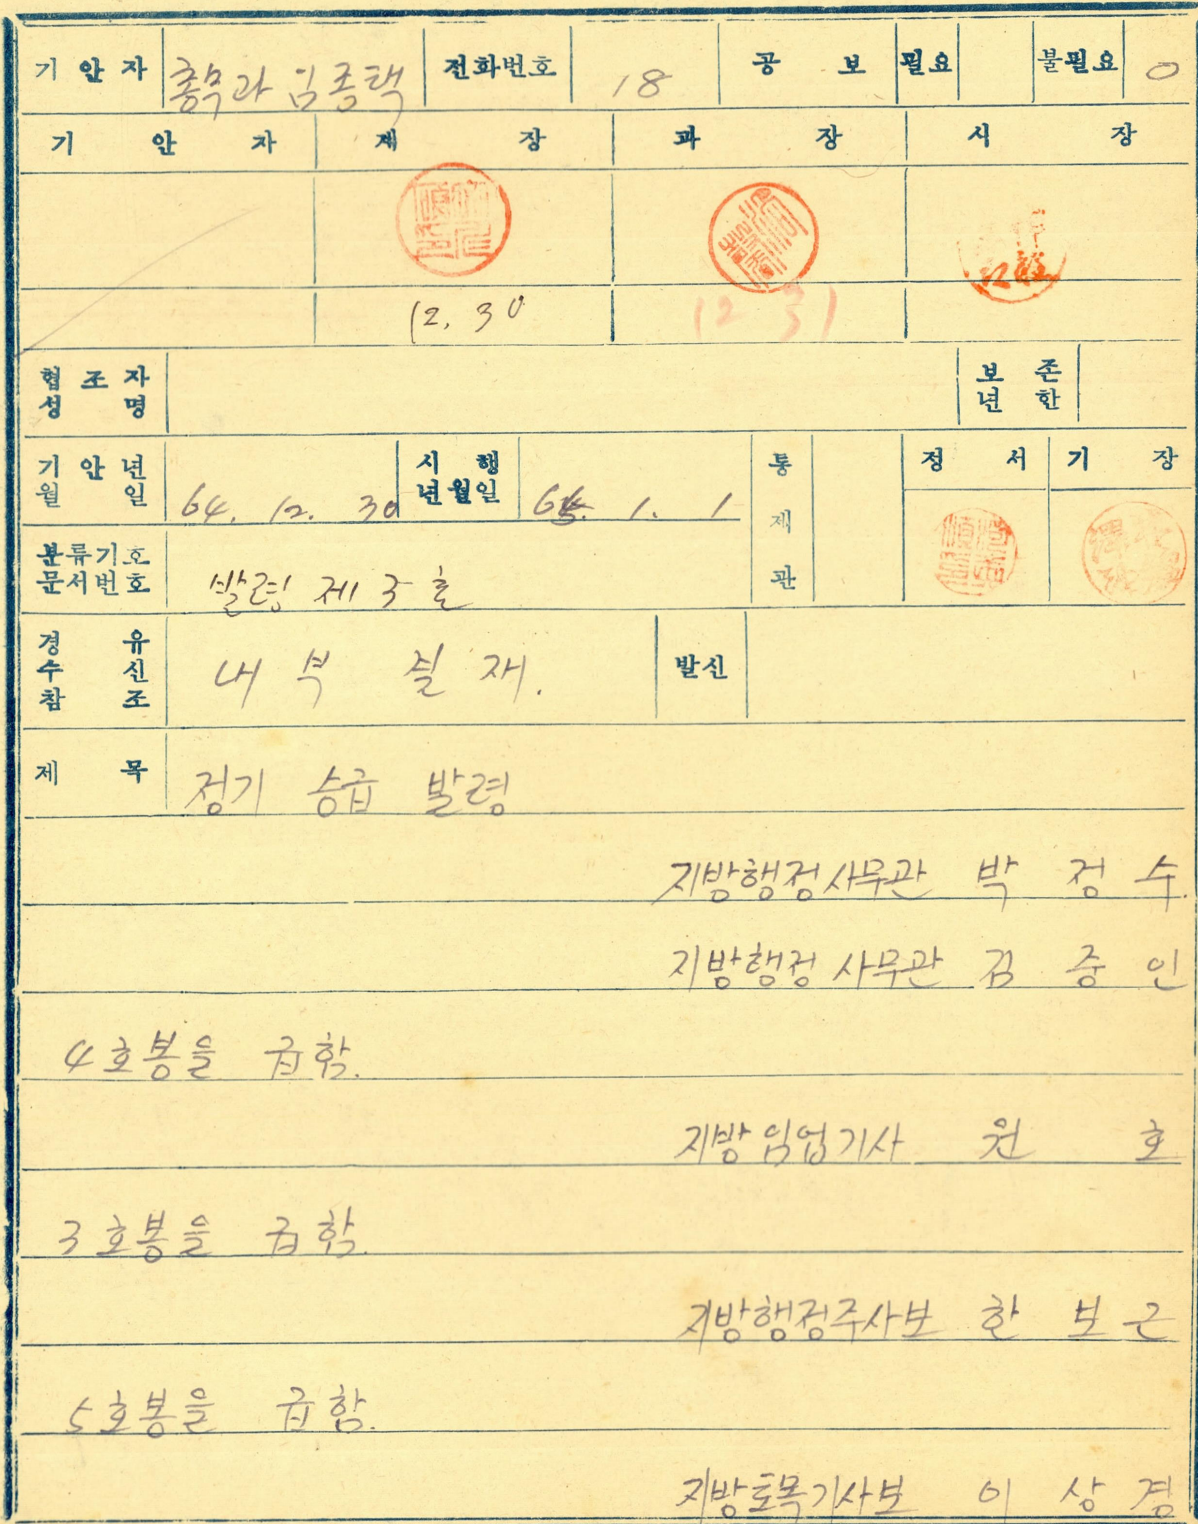 기안자 총무과 임종택 전화번호 18 공보 필요 불필요 0
기안자 계장 과장 시장
12. 30 12 31
협조자 성명 보존 년한
기안년월일 64. 12. 30 시행년월일 65. 1. 1 통제관 정서 기장
분류기호 문서번호 발령 제3호
경유 수신 참조 내부 결재. 발신
제목 정기 승급 발령
지방행정사무관 박정수.
지방행정사무관 김중인
4호봉을 급함.
지방임업기사 원호
3호봉을 급함.
지방행정주사보 한보근
5호봉을 급함.
지방토목기사보 이상경